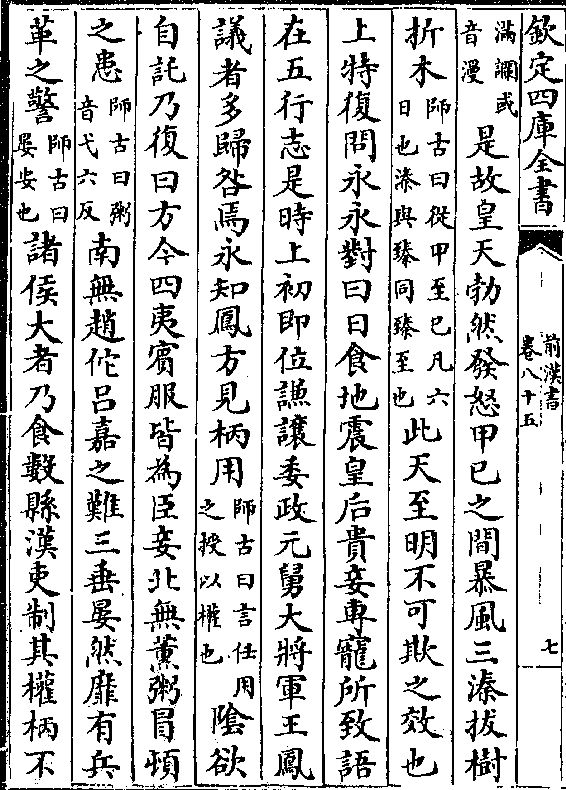 欽定四庫全書
前漢書
卷八十五
七
滿讕或
音漫
是故皇天勃然發怒甲巳之間暴風三溱拔樹
折木師古曰從甲至巳凡六
日也溱與臻同臻至也
此天至明不可欺之效也
上特復問永永對曰日食地震皇后貴妾專寵所致語
在五行志是時上初即位謙讓委政元舅大將軍王鳳
議者多歸咎焉永知鳳方見柄用師古曰言任用
之授以權也
隂欲
自託乃復曰方今四夷賓服皆為臣妾北無薰粥冒頓
之患師古曰粥
音弋六反
南無趙佗吕嘉之難三垂晏然靡有兵
革之警師古曰
晏安也
諸侯大者乃食數縣漢吏制其權柄不